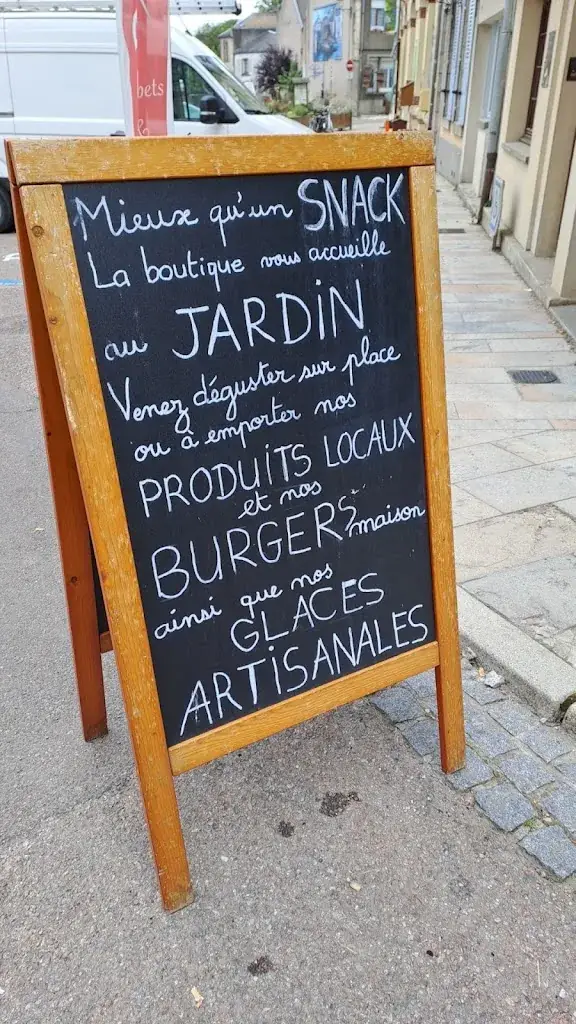 bets
&
Mieux qu'un SNACK
La boutique vous accueille
au JARDIN
Venez déguster sur place
ou à emporter nos
PRODUITS LOCAUX
et nos
BURGERS maison
ainsi que nos
GLACES
ARTISANALES